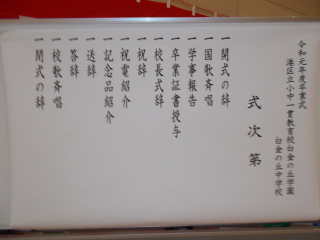 令和元年度卒業式
港区立小中一貫教育校白金の丘学園
白金の丘中学校
式次第
一開式の辞
一国歌斉唱
一学事報告
一卒業証書授与
一校長式辞
一祝辞
一祝電紹介
一記念品紹介
一送辞
一答辞
一校歌斉唱
一閉式の辞